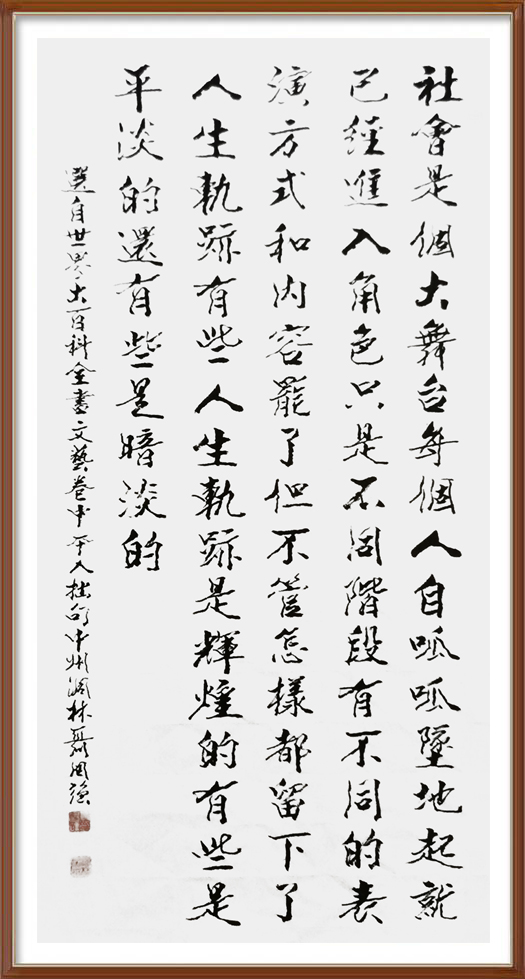 社會是個大舞台每個人自呱呱墜地起就
已經進入角色只是不同階段有不同的表
演方式和內容罷了但不管怎樣都留下了
人生軌跡有些人生軌跡是輝煌的有些是
平淡的還有些是暗淡的
選自世界大百科全書文藝卷中平人拙句中州澗林聶周強